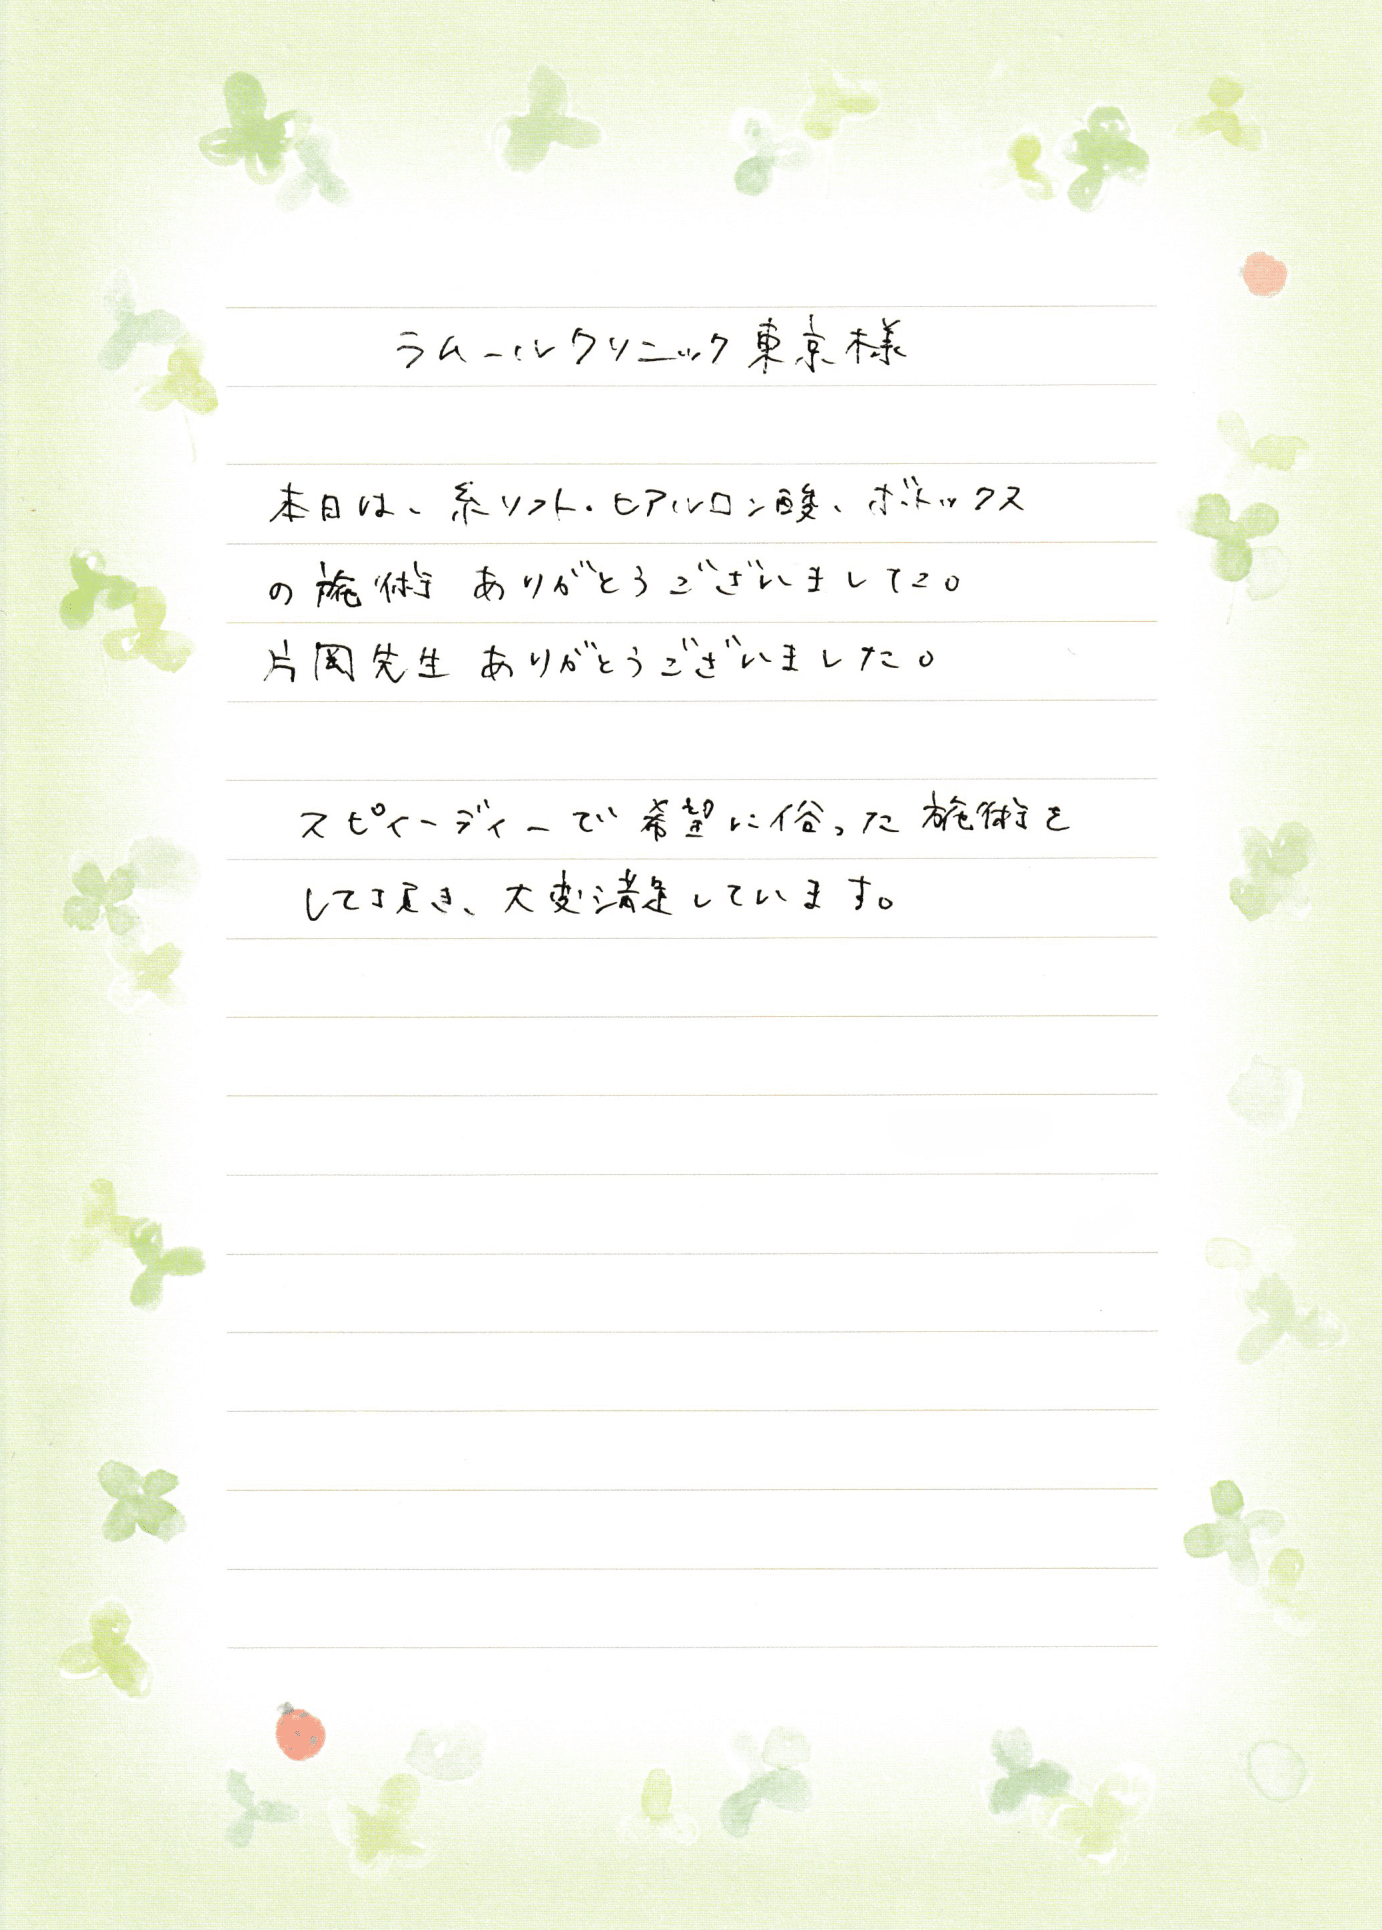 ラムールクリニック東京様
本日は、糸リフト・ヒアルロン酸、ボトックス
の施術 ありがとうございました。
片岡先生 ありがとうございました。
スピィーディーで希望に俗った施術を
して頂き、大変満足しています。